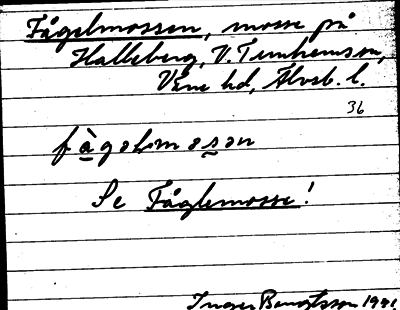 Fågelmossen, mosse på
Halleberg, V. Tunhems sn,
Väne hd, Älvsb. l.
36
fàgəlmosən
Se Fåglemosse!
Inger Bengtsson 1991